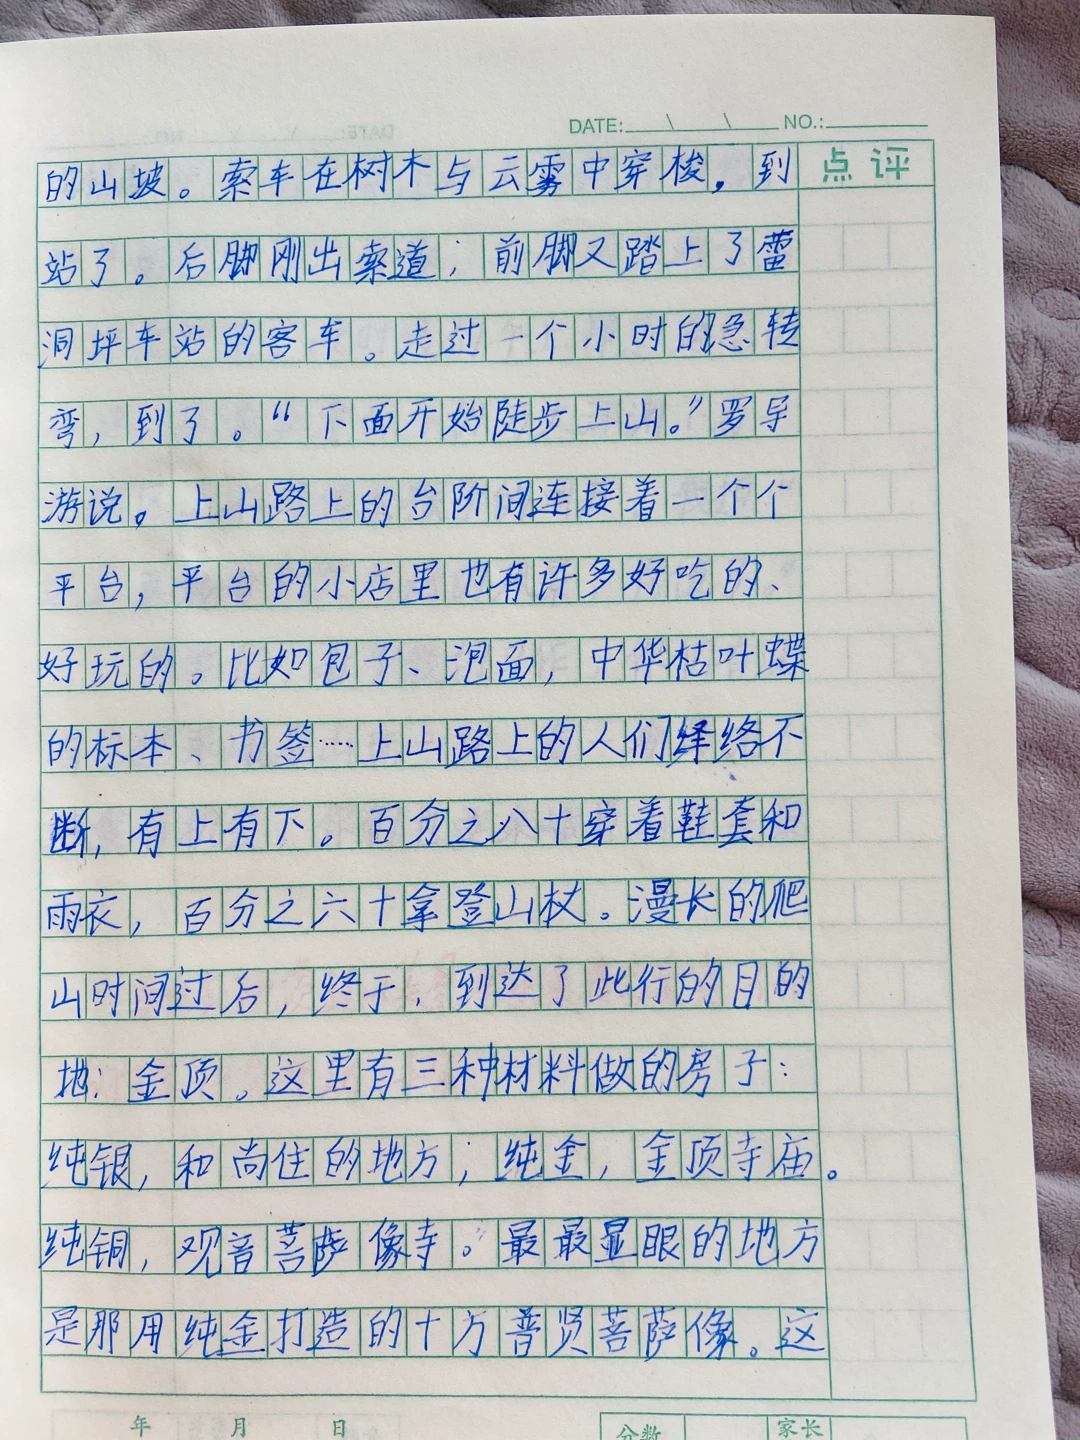 DATE:___\___\___NO.:______
点评
的山坡。索车在树木与云雾中穿梭，到
站了。后脚刚出索道，前脚又踏上了雷
洞坪车站的客车。走过一个小时的急转
弯，到了。“下面开始陡步上山。”罗导
游说。上山路上的台阶间连接着一个个
平台，平台的小店里也有许多好吃的、
好玩的。比如包子、泡面，中华枯叶蝶
的标本、书签……上山路上的人们绎络不
断，有上有下。百分之八十穿着鞋套和
雨衣，百分之六十拿登山杖。漫长的爬
山时间过后，终于，到达了此行的目的
地：金顶。这里有三种材料做的房子：
纯银，和尚住的地方；纯金，金顶寺庙。
纯铜，观音菩萨像寺。最最显眼的地方
是那用纯金打造的十方普贤菩萨像。这
年 月 日
分数
家长